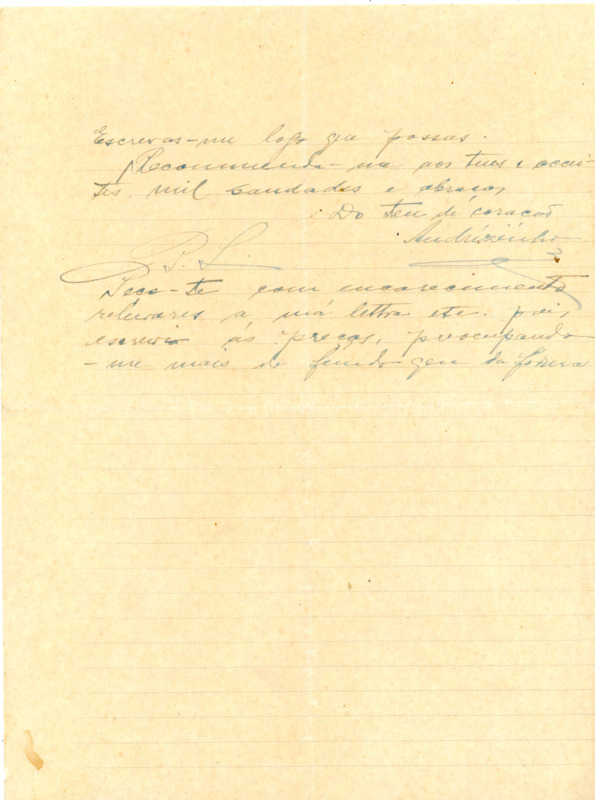 Escrevas-me logo que possas.
Recommenda-me aos teus e accei-
tes mil saudades e abraços
Do teu de coração
Andrézinho
P. S.
Peço-te com encarecimento
relevares a má lettra etc. pois
escrevo ás preças, preocupando
-me mais do fundo que da forma